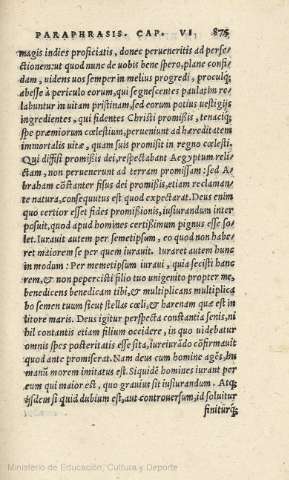 PARAPHRASIS. CAP. VI. 875
magis indies proficiatis, donec perueneritis ad perfe-
ctionem: ut quod nunc de uobis bene spero, plane confi
dam, uidens uos semper in melius progredi, proculq́;
abesse à periculo eorum, qui segnescentes paulatim re
labuntur in uitam pristinam, sed eorum potius uestigijs
ingredientes, qui fidentes Christi promißis, tenaciq́;
spe præmiorum cœlestium, perueniunt ad hæreditatem
immortalis uitæ, quam suis promisit in regno cœlesti.
Qui diffisi promißis dei, respectabant Aegyptum reli
ctam, non peruenerunt ad terram promissam: sed A
braham cōstanter fisus dei promißis, etiam reclaman
te natura, consequutus est quod expectarat. Deus enim
quo certior esset fides promißionis, iusiurandum inter
posuit, quod apud homines certißimum pignus esse so
let. Iurauit autem per semetipsum, eo quod non habe
ret maiorem se per quem iurauit. Iuraret autem hunc
in modum: Per memetipsum iuraui, quia fecisti hanc
rem, & non pepercisti filio tuo unigenito propter me,
benedicens benedicam tibi, & multiplicans multiplica
bo semen tuum sicut stellas cœli, & harenam quæ est in
litore maris. Deus igitur perspecta constantia senis, ni
hil contantis etiam filium occidere, in quo uidebatur
omnis spes posteritatis esse sita, iureiurādo cōfirmauit
quod ante promiserat. Nam deus cum homine agēs, hu
manū morem imitatus est. Siquidē homines iurant per
eum qui maior est, quo grauius sit iusiurandum. Atq́;
ijsdem si quid dubium est, aut controuersum, id soluitur
finiturq́;
Ministerio de Educación, Cultura y Deporte